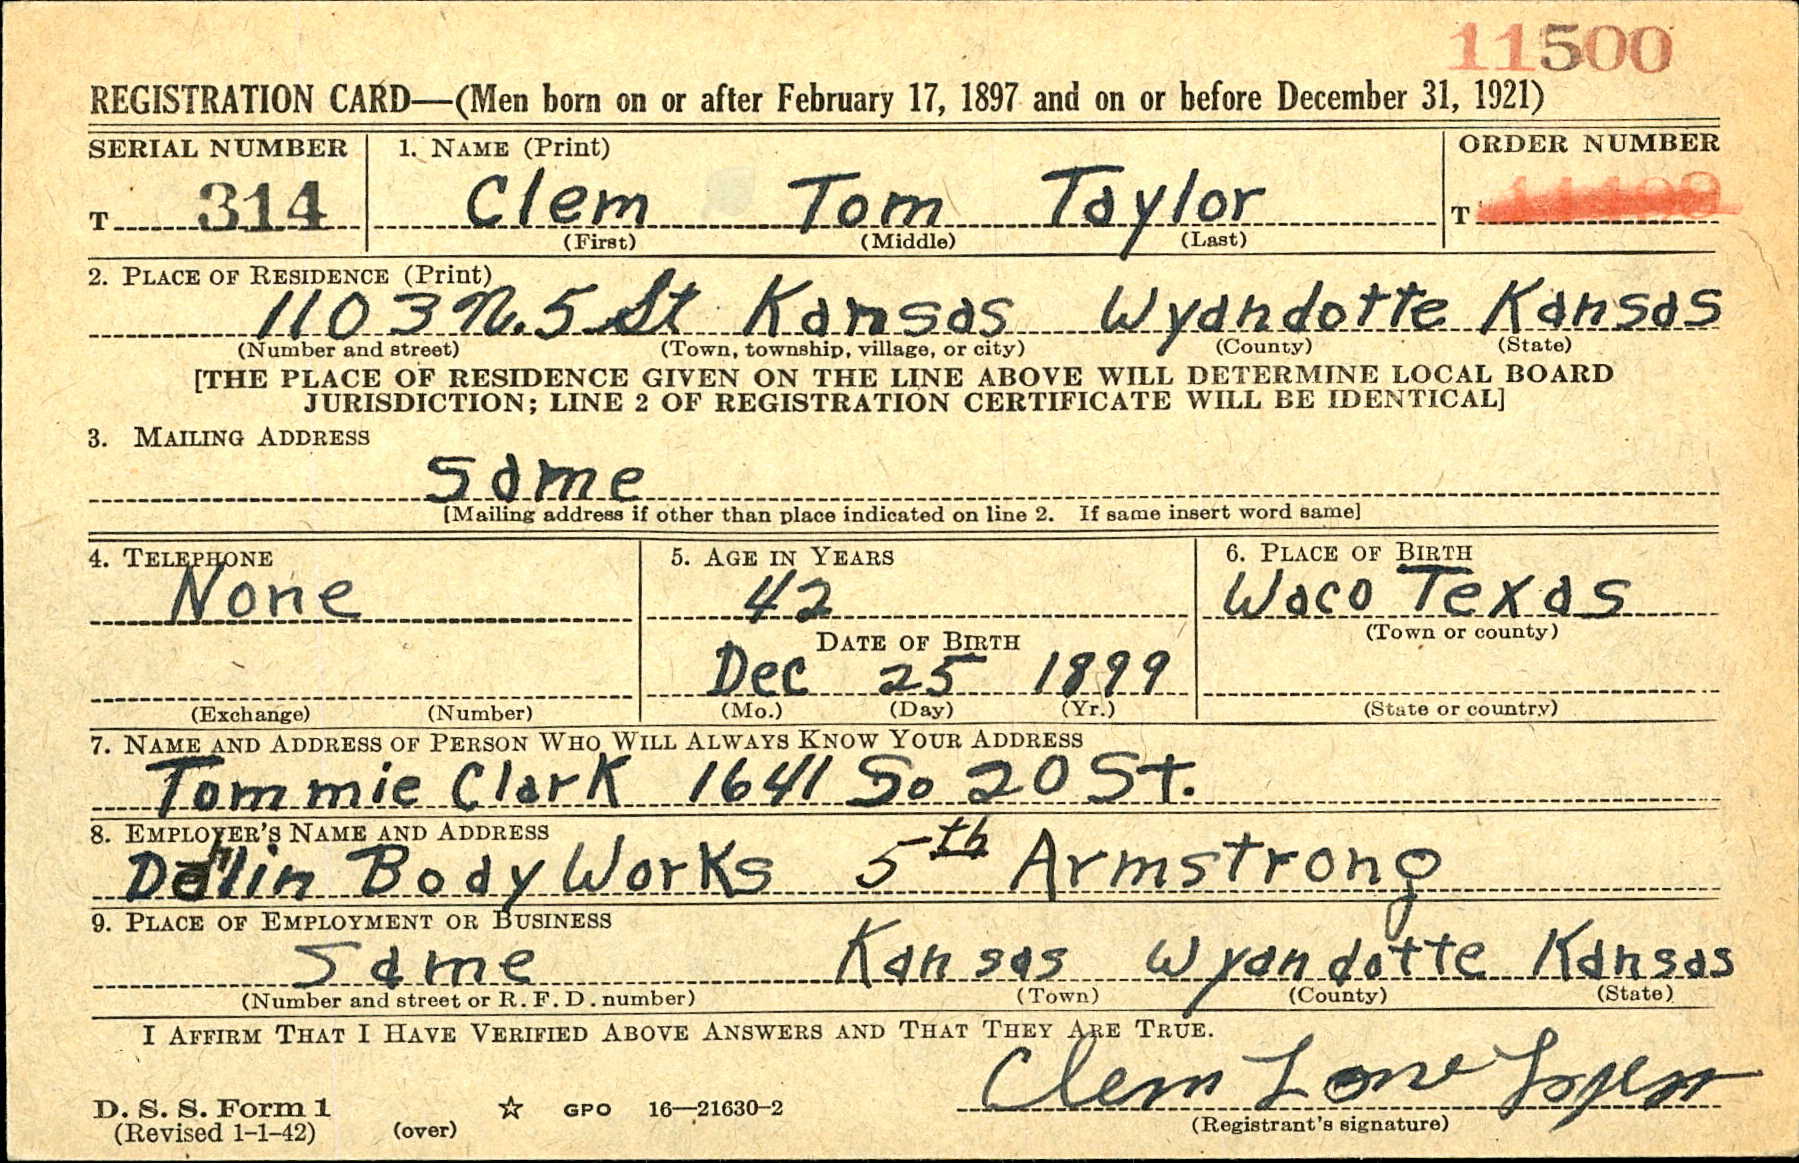 11500
REGISTRATION CARD—(Men born on or after February 17, 1897 and on or before December 31, 1921)
SERIAL NUMBER 1. NAME (Print) ORDER NUMBER
T 314 Clem Tom Taylor T
(First) (Middle) (Last)
2. PLACE OF RESIDENCE (Print)
1103 N. 5 St Kansas Wyandotte Kansas
(Number and street) (Town, township, village, or city) (County) (State)
[THE PLACE OF RESIDENCE GIVEN ON THE LINE ABOVE WILL DETERMINE LOCAL BOARD
JURISDICTION; LINE 2 OF REGISTRATION CERTIFICATE WILL BE IDENTICAL]
3. MAILING ADDRESS
Same
[Mailing address if other than place indicated on line 2. If same insert word same]
4. TELEPHONE 5. AGE IN YEARS 6. PLACE OF BIRTH
None 42 Waco Texas
(Town or county)
DATE OF BIRTH
Dec 25 1899
(Exchange) (Number) (Mo.) (Day) (Yr.) (State or country)
7. NAME AND ADDRESS OF PERSON WHO WILL ALWAYS KNOW YOUR ADDRESS
Tommie Clark 1641 So 20 St.
8. EMPLOYER'S NAME AND ADDRESS
Body Works 5th Armstrong
9. PLACE OF EMPLOYMENT OR BUSINESS
Same Kansas Wyandotte Kansas
(Number and street or R. F. D. number) (Town) (County) (State)
I AFFIRM THAT I HAVE VERIFIED ABOVE ANSWERS AND THAT THEY ARE TRUE.
Clem
D. S. S. Form 1 ☆ GPO 16—21630-2
(Revised 1-1-42) (over) (Registrant's signature)